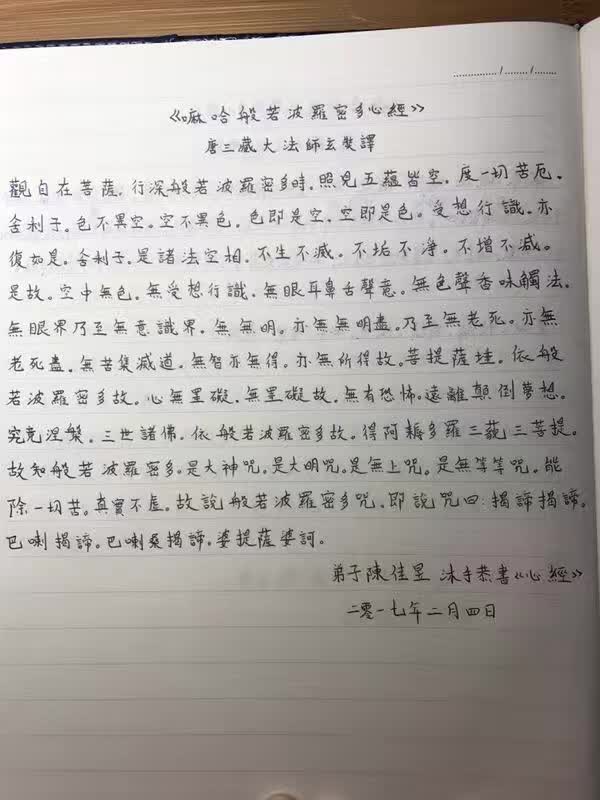 ............... / ........ / ........
《嘛哈般若波羅密多心經》
唐三藏大法師玄奘譯
觀自在菩薩.行深般若波羅密多時.照見五蘊皆空.度一切苦厄.
舍利子.色不異空.空不異色.色即是空.空即是色.受想行識.亦
復如是.舍利子.是諸法空相.不生不滅.不垢不淨.不增不減。
是故.空中無色.無受想行識.無眼耳鼻舌聲意。無色聲香味觸法.
無眼界乃至無意識界.無無明.亦無無明盡.乃至無老死.亦無
老死盡.無苦集滅道.無智亦無得.亦無所得故.菩提薩埵.依般
若波羅密多故.心無罣礙.無罣礙故.無有恐怖.遠離顛倒夢想.
究竟涅槃.三世諸佛.依般若波羅密多故.得阿耨多羅三藐三菩提.
故知般若波羅密多.是大神咒.是大明咒.是無上咒.是無等等咒.能
除一切苦.真實不虛.故說般若波羅密多咒.即說咒曰:揭諦揭諦.
巴喇揭諦.巴喇桑揭諦.婆提薩婆訶。
弟子陳佳昱 沐手恭書《心經》
二零一七年二月四日